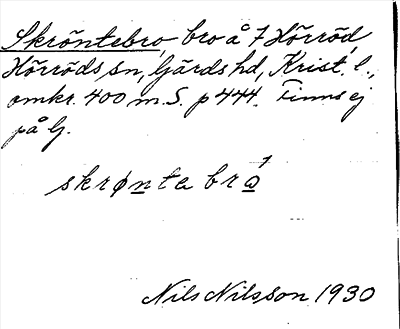 Skröntebro, bro å 7 Hörröd,
Hörröds sn, Gärds hd, Krist. l.,
omkr. 400 m. S. p 444. Finns ej
på G.
skrøntabro
Nils Nilsson 1930